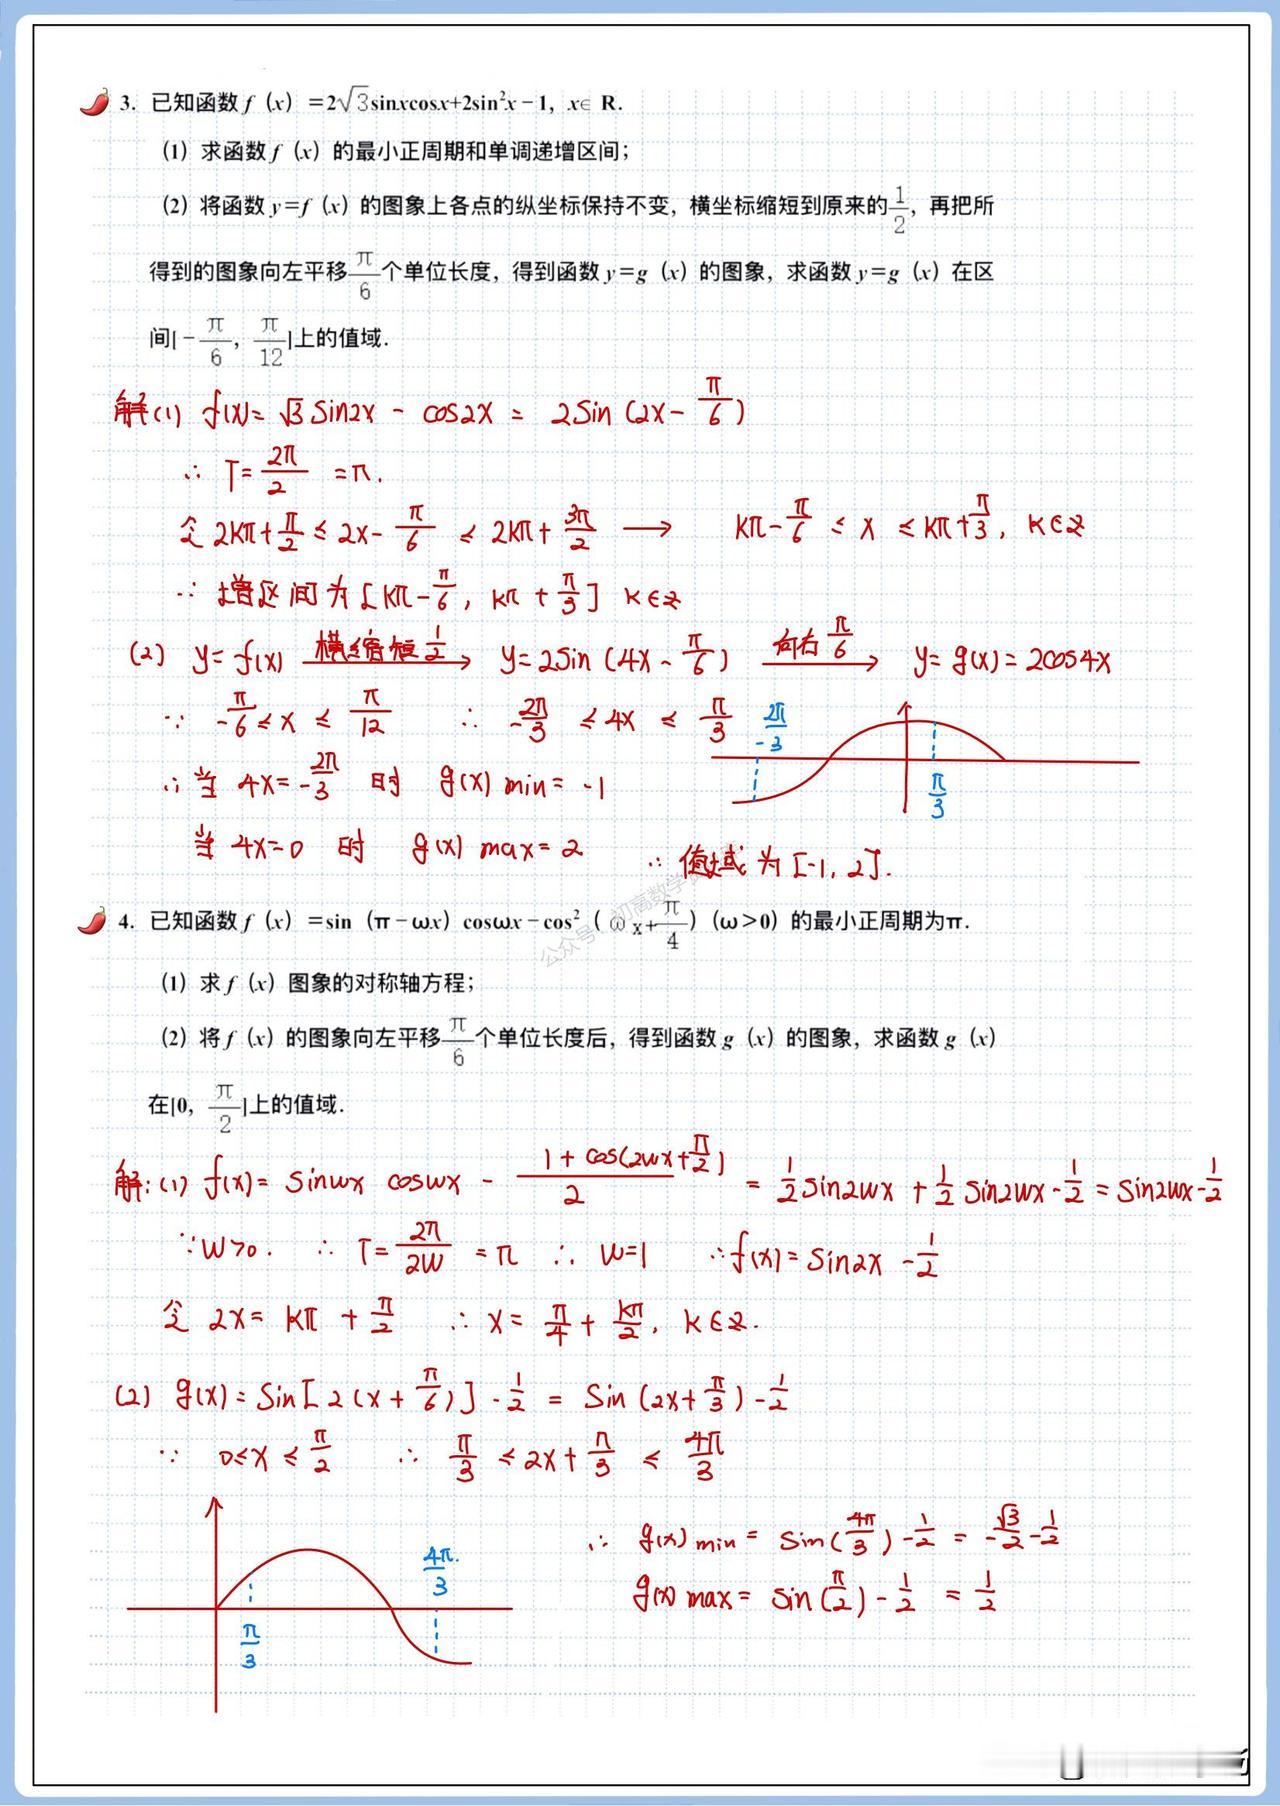 3. 已知函数 f（x）=2√3sinxcosx+2sin²x－1，x∈ R.
（1）求函数 f（x）的最小正周期和单调递增区间；
（2）将函数 y=f（x）的图象上各点的纵坐标保持不变，横坐标缩短到原来的1/2，再把所
得到的图象向左平移π/6个单位长度，得到函数 y=g（x）的图象，求函数 y=g（x）在区
间[－π/6，π/12]上的值域.
解(1) f(x)= √3 sin2x - cos2x = 2sin (2x- π/6)
∴ T= 2π/2 =π.
令 2kπ+π/2 ≤ 2x- π/6 ≤ 2kπ+ 3π/2 → kπ-π/6 ≤ x ≤ kπ+π/3, k∈z
∴ 增区间为 [kπ-π/6, kπ + π/3] k∈z
(2) y= f(x) 横缩短1/2 → y=2sin (4x - π/6) 向右π/6 → y= g(x)= 2cos4x
∵ -π/6 ≤ x ≤ π/12 ∴ -2π/3 ≤ 4x ≤ π/3
-2π/3
π/3
∴ 当 4x= -2π/3 时 g(x) min = -1
当 4x=0 时 g(x) max = 2 ∴ 值域为 [-1, 2].
4. 已知函数 f（x）=sin（π－ωx）cosωx－cos²（ωx+π/4）（ω＞0）的最小正周期为π.
（1）求 f（x）图象的对称轴方程；
（2）将 f（x）的图象向左平移π/6个单位长度后，得到函数 g（x）的图象，求函数 g（x）
在[0，π/2]上的值域.
解:(1) f(x)= sinwx coswx - (1+cos(2wx+π/2))/2 = 1/2 sin2wx + 1/2 sin2wx - 1/2 = sin2wx - 1/2
∵ w>0. ∴ T= 2π/2w = π ∴ w=1 ∴ f(x)= sin2x - 1/2
令 2x= kπ + π/2 ∴ x= π/4 + kπ/2, k∈z.
(2) g(x)= sin[2(x+π/6)] - 1/2 = sin (2x+π/3) - 1/2
∵ 0≤x≤π/2 ∴ π/3 ≤ 2x+π/3 ≤ 4π/3
π/3
4π/3.
∴ g(x) min = sin(4π/3) - 1/2 = -√3/2 - 1/2
g(x) max = sin(π/2) - 1/2 = 1/2